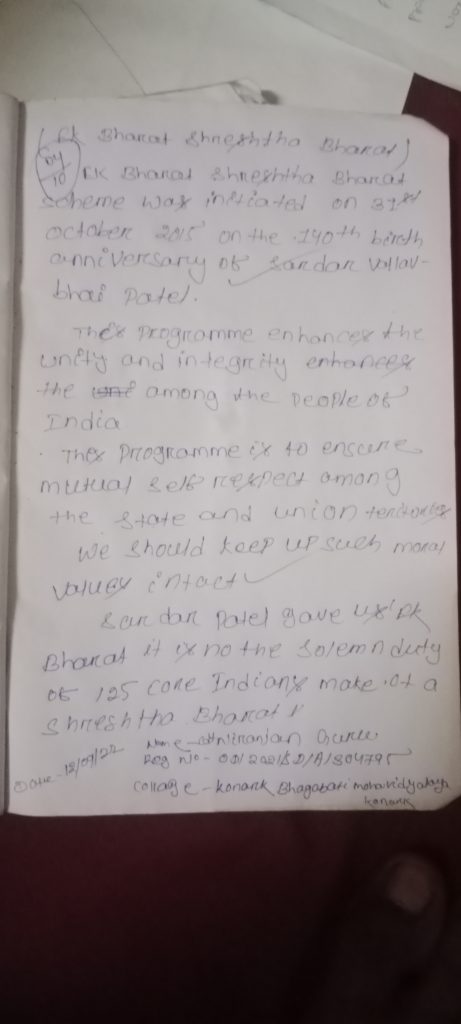 (Ek Bharat Shreshtha Bharat)
10
EK Bharat Shreshtha Bharat
scheme was initiated on 31st
october 2015 on the 140th birth
anniversary of Sardar Vallav-
bhai Patel.
This programme enhances the
unity and integrity enhances
the among the people of
India
This programme is to ensure
mutual self respect among
the state and union territories
We should keep up such moral
values intact
Sardar Patel gave us Ek
Bharat it is no the solemn duty
of 125 core Indians make it a
Shreshtha Bharat
Name - Guru
Reg No -
Date - 12/07/22
Collage - konark Bhagabati mohavidyalaya
konark